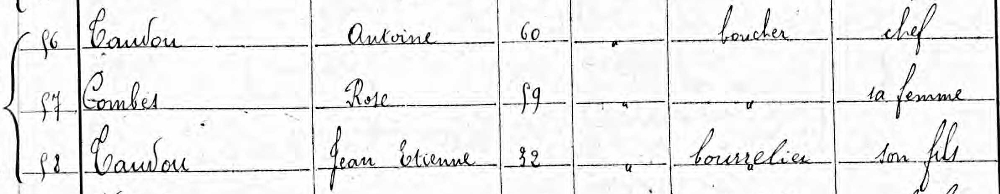 56 Taudou Antoine 60 " boucher chef
57 Combes Rose 59 " " sa femme
58 Taudou Jean Etienne 32 " bourrelier son fils